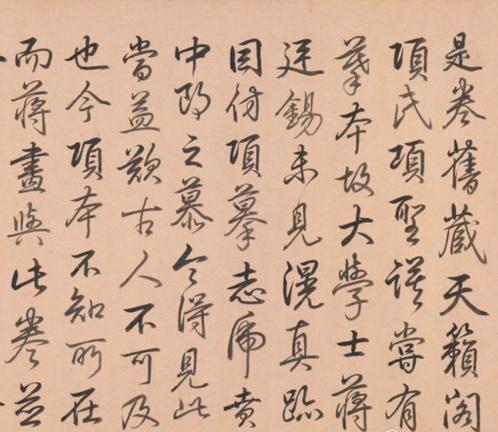 是卷舊藏天籟閣
項氏項聖謨嘗有
摹本故大學士蔣
廷錫未見滉真跡
因仿項摹志虎賁
中郎之慕今得見此
當益歎古人不可及
也今項本不知所在
而蔣畫與此卷並